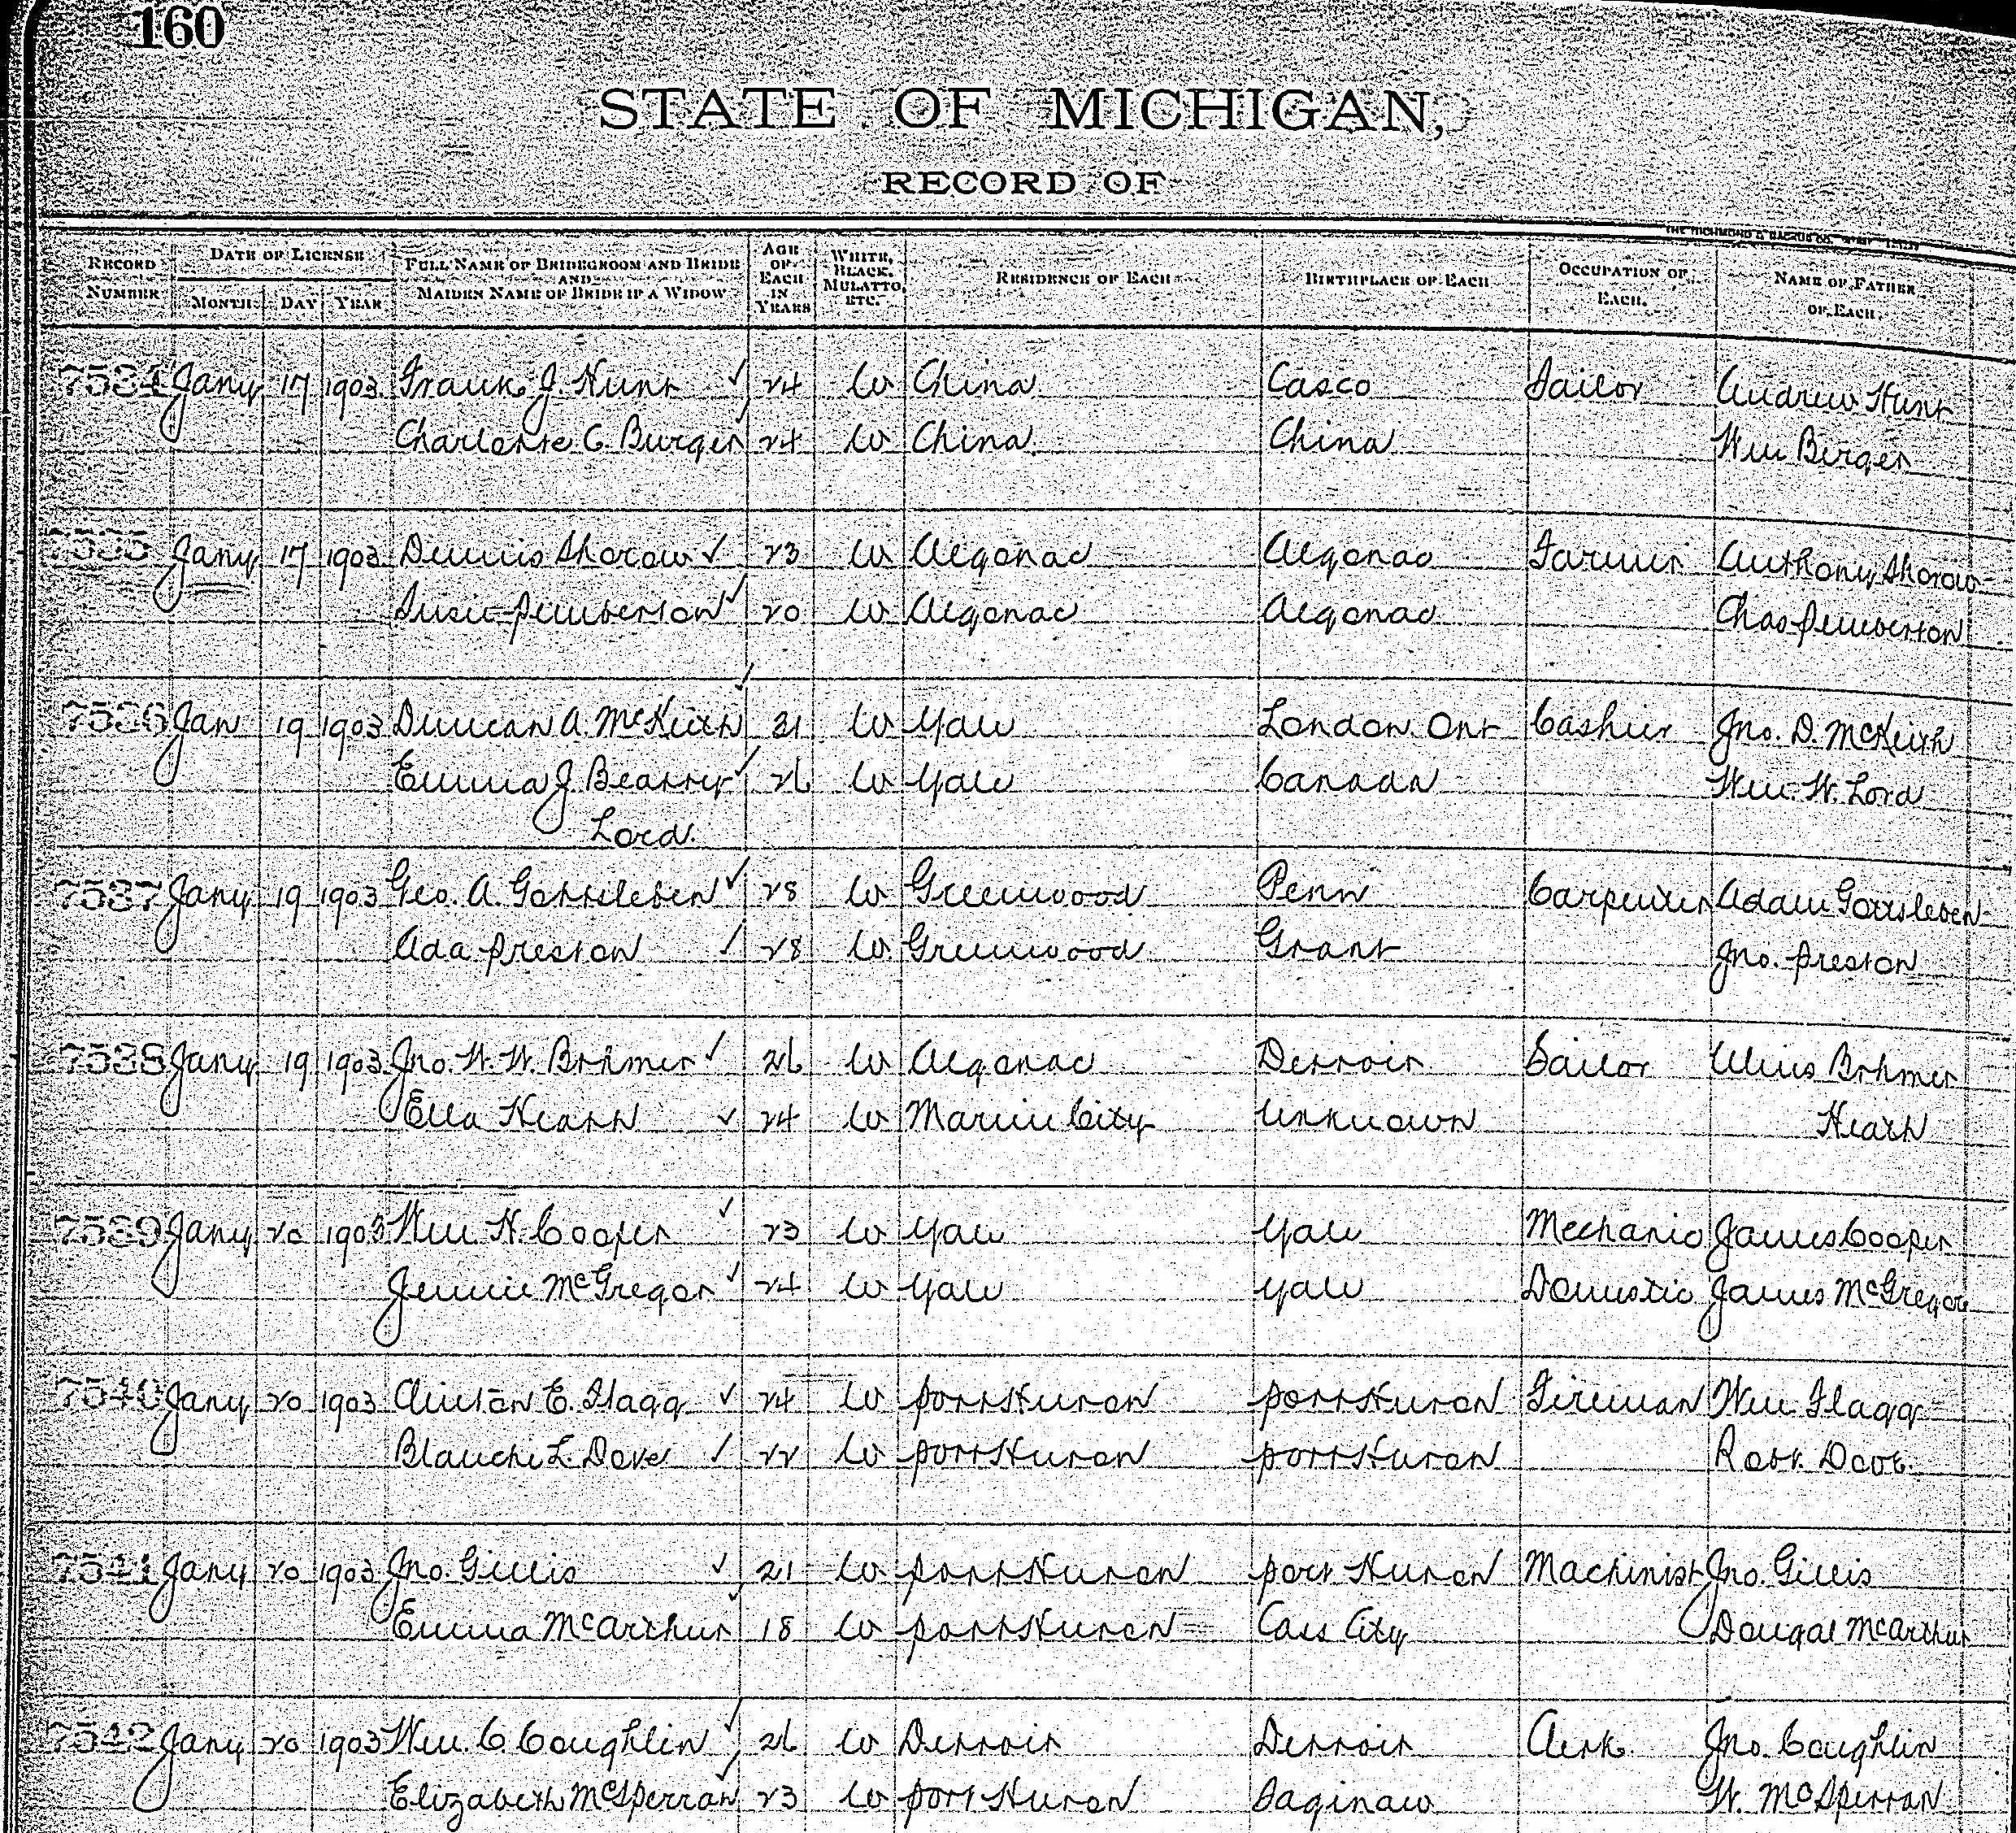 160
STATE OF MICHIGAN,
RECORD OF
RECORD NUMBER
DATE OF LICENSE
MONTH DAY YEAR
FULL NAME OF BRIDEGROOM AND BRIDE
AND
MAIDEN NAME OF BRIDE IF A WIDOW
AGE OF EACH IN YEARS
WHITE, BLACK, MULATTO, ETC.
RESIDENCE OF EACH
BIRTHPLACE OF EACH
OCCUPATION OF EACH.
NAME OF FATHER OF EACH.
THE RICHMOND & BACKUS CO.
7534 Jany 17 1903 Frank J. Hunt ✓ 24 W China Casco Sailor Andrew Hunt
Charlotte C. Burger ✓ 24 W China China Wm Burger
7535 Jany 17 1903 Dennis Shorow ✓ 23 W Algonac Algonac Farmer Anthony Shorow
Susie Pemberton ✓ 20 W Algonac Algonac Chas Pemberton
7536 Jan 19 1903 Duncan A. McKeith ✓ 31 W Yale London Ont Cashier Jno. D. McKeith
Emma J. Beatty ✓ 26 W Yale Canada Wm. W. Lord
Lord
7537 Jany 19 1903 Geo. A. Gottsleben ✓ 28 W Greenwood Penn Carpenter Adam Gottsleben
Ada Preston ✓ 28 W Greenwood Grant Jno. Preston
7538 Jany 19 1903 Jno. W. W. Bohmer ✓ 26 W Algonac Detroit Sailor Bohmer
Ella Heath ✓ 24 W Marine City Unknown Heath
7539 Jany 20 1903 Wm H. Cooper ✓ 23 W Yale Yale Mechanic James Cooper
Jennie McGregor ✓ 24 W Yale Yale Domestic James McGregor
7540 Jany 20 1903 Clinton E. Flagg ✓ 24 W Port Huron Port Huron Fireman Wm Flagg
Blanche L. Dove ✓ 22 W Port Huron Port Huron Robt. Dove
7541 Jany 20 1903 Jno. Gillis ✓ 21 W Port Huron Port Huron Machinist Jno. Gillis
Emma McArthur ✓ 18 W Port Huron Cass City Dougal McArthur
7542 Jany 20 1903 Wm. C. Coughlin ✓ 26 W Detroit Detroit Clerk Jno. Coughlin
Elizabeth McSperran ✓ 23 W Port Huron Saginaw W. McSperran